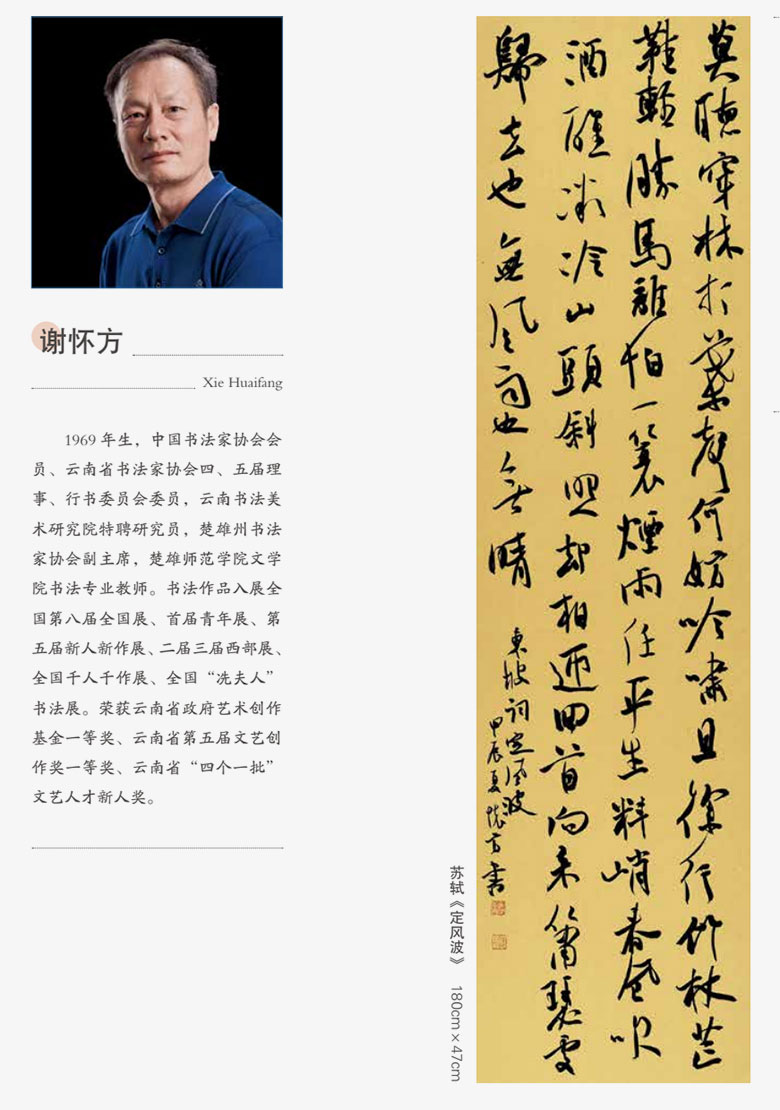 谢怀方
Xie Huaifang
1969 年生，中国书法家协会会
员、云南省书法家协会四、五届理
事、行书委员会委员，云南书法美
术研究院特聘研究员，楚雄州书法
家协会副主席，楚雄师范学院文学
院书法专业教师。书法作品入展全
国第八届全国展、首届青年展、第
五届新人新作展、二届三届西部展、
全国千人千作展、全国“冼夫人”
书法展。荣获云南省政府艺术创作
基金一等奖、云南省第五届文艺创
作奖一等奖、云南省“四个一批”
文艺人才新人奖。
莫聽穿林打葉聲何妨吟嘯且徐行竹杖芒
鞋輕勝馬誰怕一蓑煙雨任平生料峭春風吹
酒醒微冷山頭斜照却相迎回首向来蕭瑟處
歸去也無風雨也無晴
東坡詞定風波
甲辰夏懷方書
苏轼《定风波》 180cm×47cm